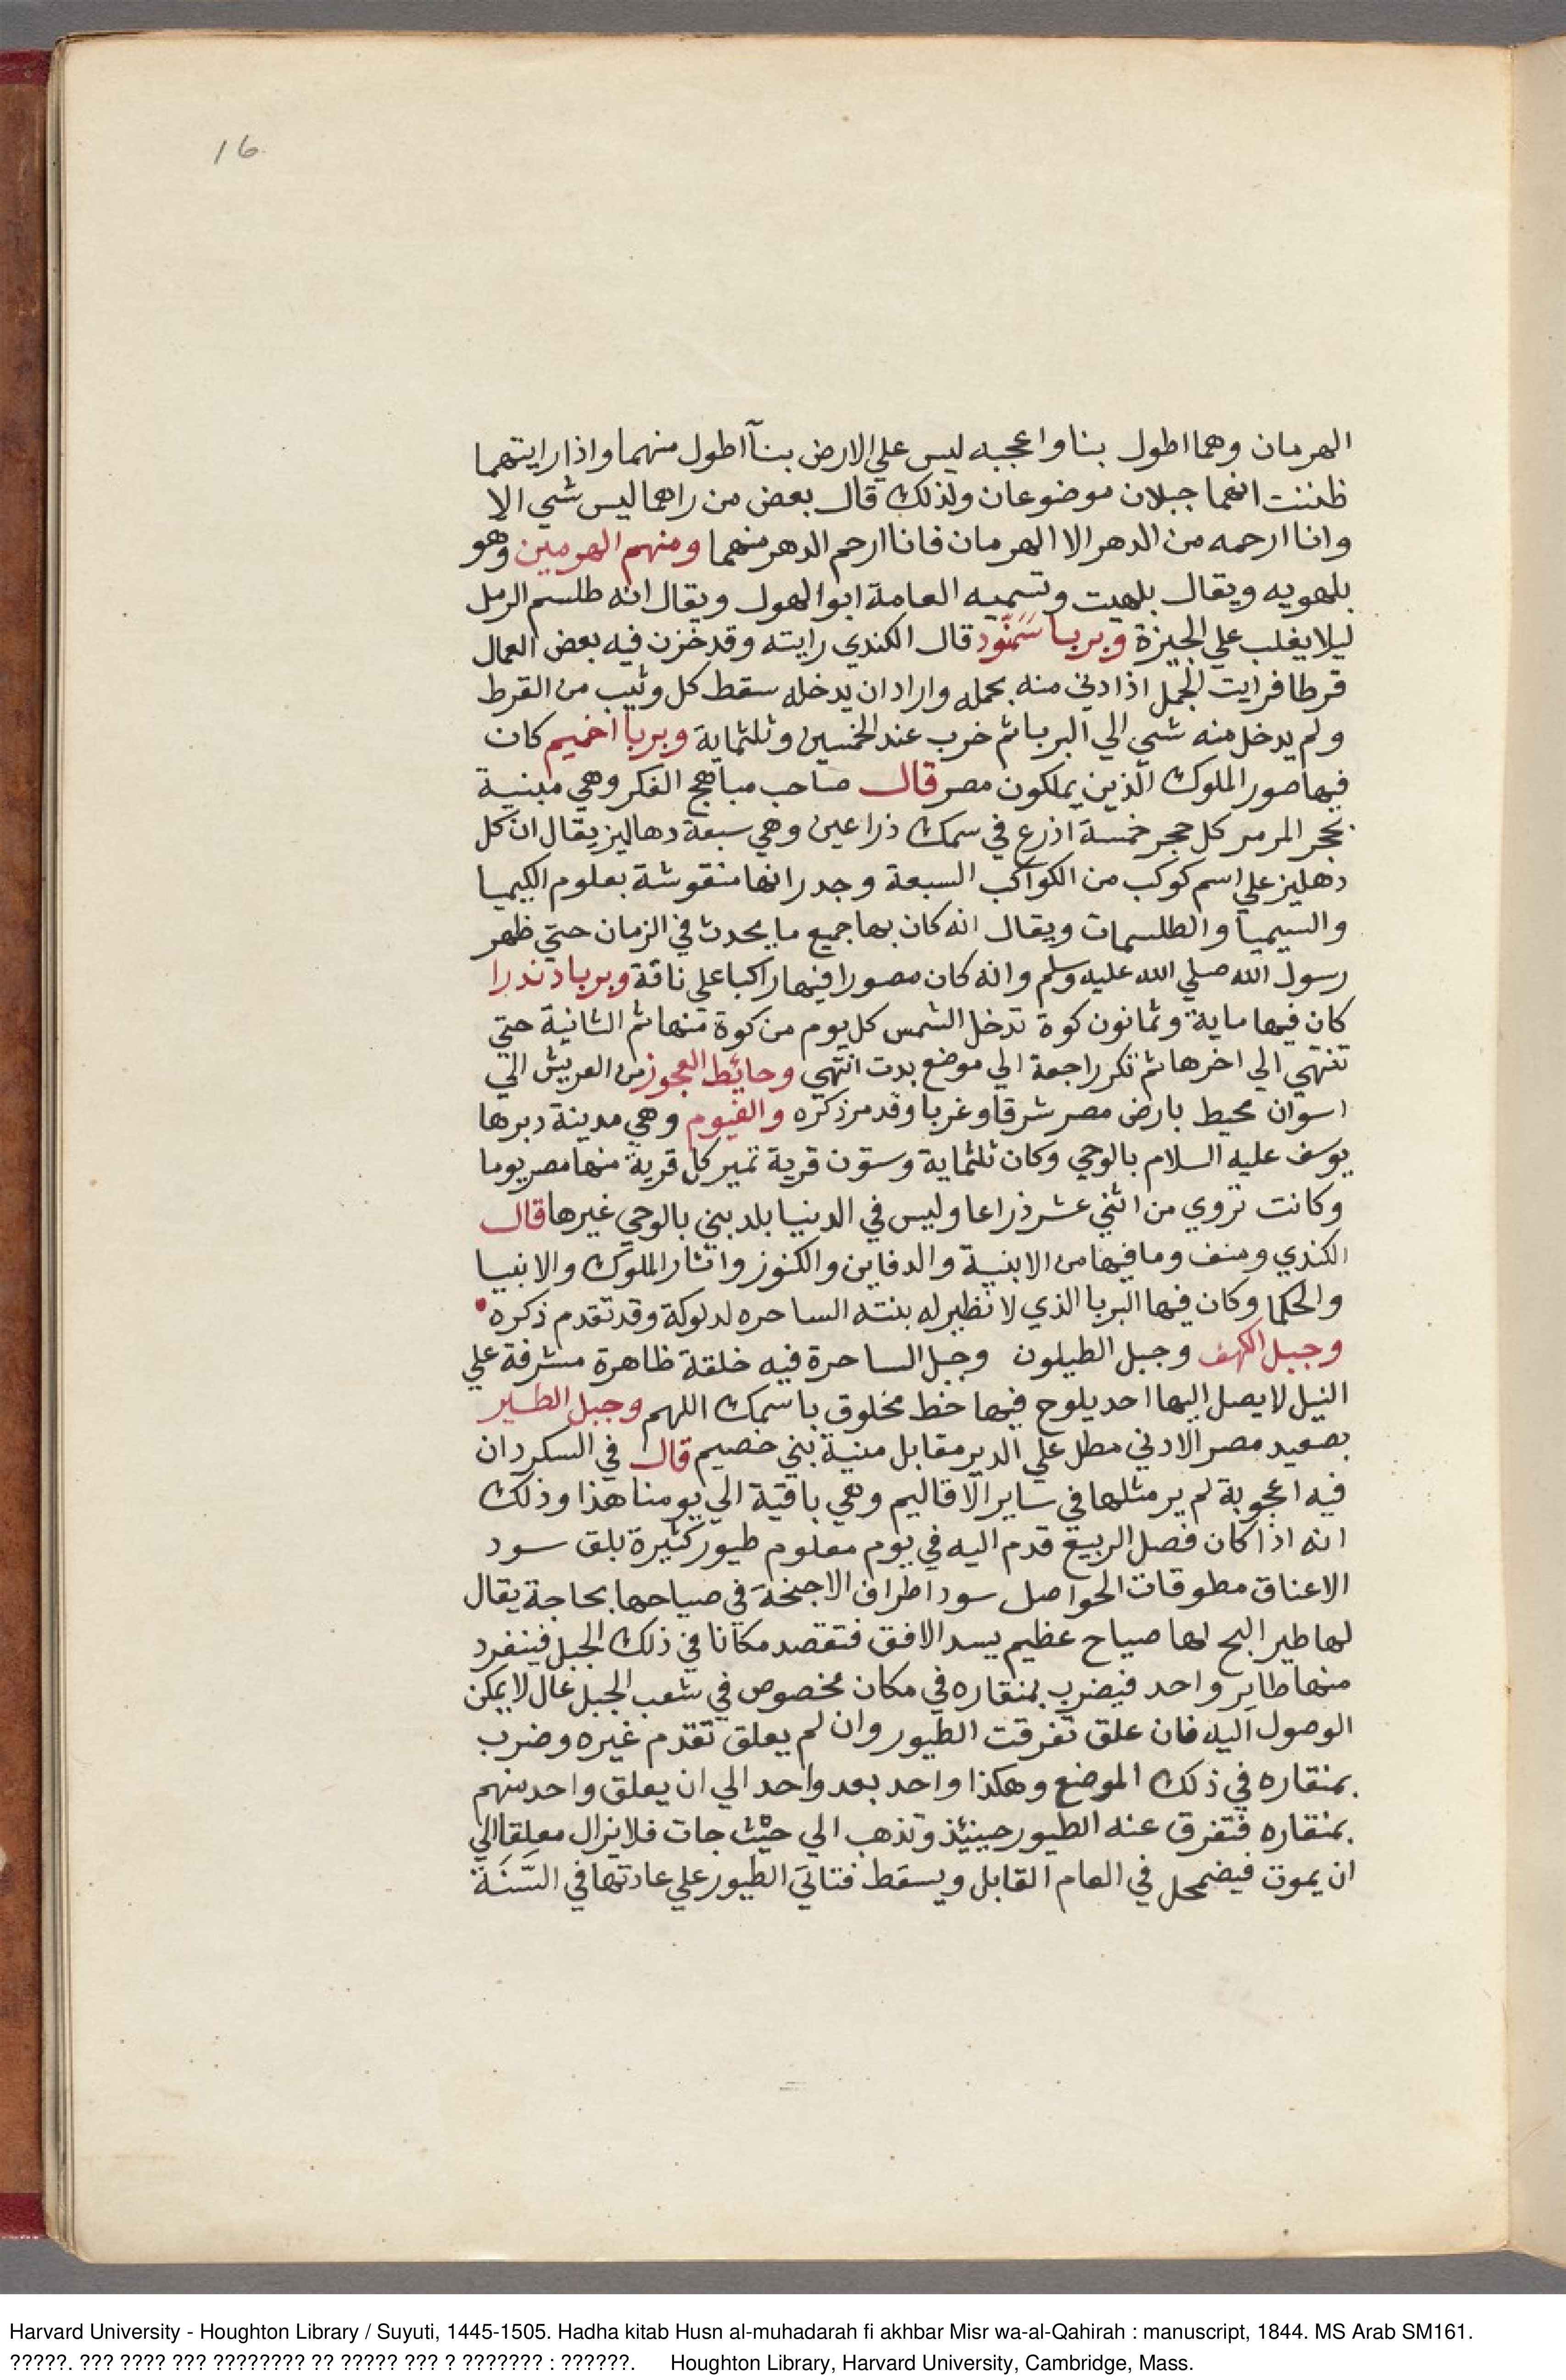 16
الهرمان وهما اطول بنا واعجبه ليس علي الارض بنآ اطول منهما واذا رايتهما
ظننت انهما جبلان موضوعان ولذلك قال بعض من راهما ليس شي الا
وانا ارحمه من الدهر الا الهرمان فانا ارحم الدهر منهما ومنهم الهرمين وهو
بلهويه ويقال بلهيت وتسميه العامة ابو الهول ويقال انه طلسم الرمل
ليلا يغلب علي الجيزة وبربا سَمَنّود قال الكندي رايته وقد خزن فيه بعض العمال
قرطا فرايت الجمل اذا دني منه بحمله واراد ان يدخله سقط كل وثيب من القرط
ولم يدخل منه شي الي البربا ثم خرب عند الخمسين وثلثماية وبربا اخميم كان
فيها صور الملوك الذين يملكون مصر قال صاحب مباهج الفكر وهي مبنية
بحجر المرمر كل حجر خمسة اذرع في سمك ذراعين وهي سبعة دهاليز يقال ان كل
دهليز علي اسم كوكب من الكواكب السبعة وجدرانها منقوشة بعلوم الكيميا
والسيميا والطلسمات ويقال انه كان بها جميع ما يحدث في الزمان حتي ظهر
رسول الله صلي الله عليه وسلم وانه كان مصورا فيها راكبا علي ناقة وبربا دندرا
كان فيها ماية وثمانون كوة تدخل الشمس كل يوم من كوة منها ثم الثانية حتي
تنتهي الي اخرها ثم تكر راجعة الي موضع بدت انتهي وحائط العجوز من العريش الي
اسوان محيط بارض مصر شرقا وغربا وقد مر ذكره والفيوم وهي مدينة دبرها
يوسف عليه السلام بالوحي وكان ثلثماية وستون قرية تمير كل قرية منها مصر يوما
وكانت تروي من اثني عشر ذراعا وليس في الدنيا بلد بني بالوحي غيرها قال
الكندي ومنف وما فيها من الابنية والدفاين والكنوز واثار الملوك والانبيا
والحكما وكان فيها البربا الذي لا نظير له بنته الساحره لدلوكة وقد تقدم ذكره
وجبل الكهف وجبل الطيلون وجبل الساحرة فيه خلقة ظاهرة مشرفة علي
النيل لا يصل اليها احد يلوح فيها خط مخلوق باسمك اللهم وجبل الطير
بصعيد مصر الادني مطل علي الدير مقابل منية بني خصيم قال في السكردان
فيه اعجوبة لم ير مثلها في ساير الاقاليم وهي باقية الي يومنا هذا وذلك
انه اذا كان فصل الربيع قدم اليه في يوم معلوم طيور كثيرة بلق سود
الاعناق مطوقات الحواصل سود اطراف الاجنحة في صياحها بحاجة يقال
لها طير البح لها صياح عظيم يسد الافق فتقصد مكانا في ذلك الجبل فينفرد
منها طاير واحد فيضرب بمنقاره في مكان مخصوص في شعب الجبل عال لا يمكن
الوصول اليه فان علق تفرقت الطيور وان لم يعلق تقدم غيره وضرب
بمنقاره في ذلك الموضع وهكذا واحد بعد واحد الي ان يعلق واحد منهم
بمنقاره فتفرق عنه الطيور حينيئذ وتذهب الي حيث جات فلا يزال معلقا الي
ان يموت فيضمحل في العام القابل ويسقط فتاتي الطيور علي عادتها في السَّنَة
Harvard University - Houghton Library / Suyuti, 1445-1505. Hadha kitab Husn al-muhadarah fi akhbar Misr wa-al-Qahirah : manuscript, 1844. MS Arab SM161.
?????. ??? ???? ??? ???????? ?? ????? ??? ? ??????? : ??????. Houghton Library, Harvard University, Cambridge, Mass.